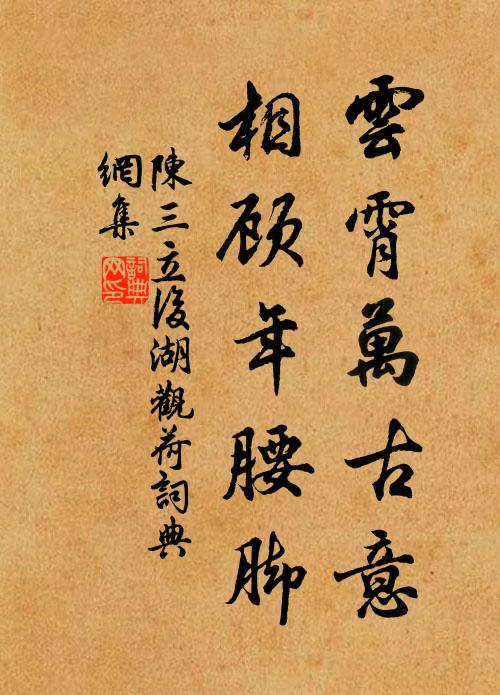 雲霄萬古意
相顾年腰脚
陳三立後湖觀荷詞典
網集
詞典
网印